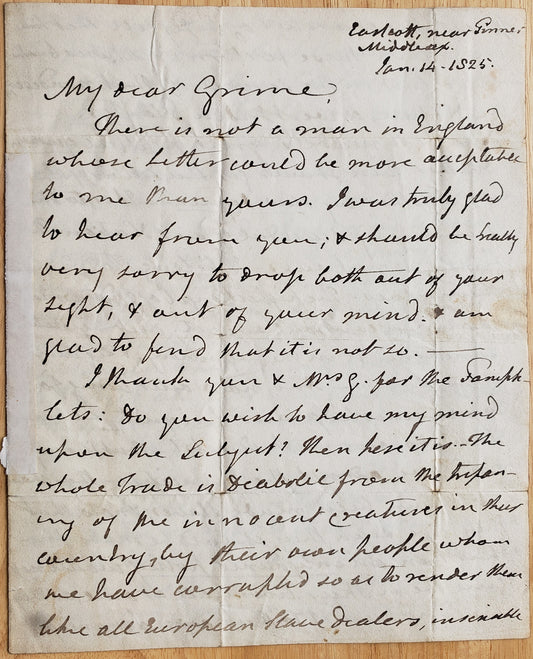 Eastcott, near Pinner
Middlesex.
Jan. 14 - 1825.
My dear Grime,
There is not a man in England
whose Letter could be more acceptable
to me than yours. I was truly glad
to hear from you; & should be really
very sorry to drop both out of your
sight, & out of your mind. & am
glad to find that it is not so. —
I thank you & Mrs g. for the Pamph-
lets: Do you wish to have my mind
upon the Subject? Then here it is. - The
whole Trade is Diabolic from the trepan-
ing of the innocent creatures in their
country, by their own people whom
we have corrupted so as to render them
like all European Slave dealers, insensible